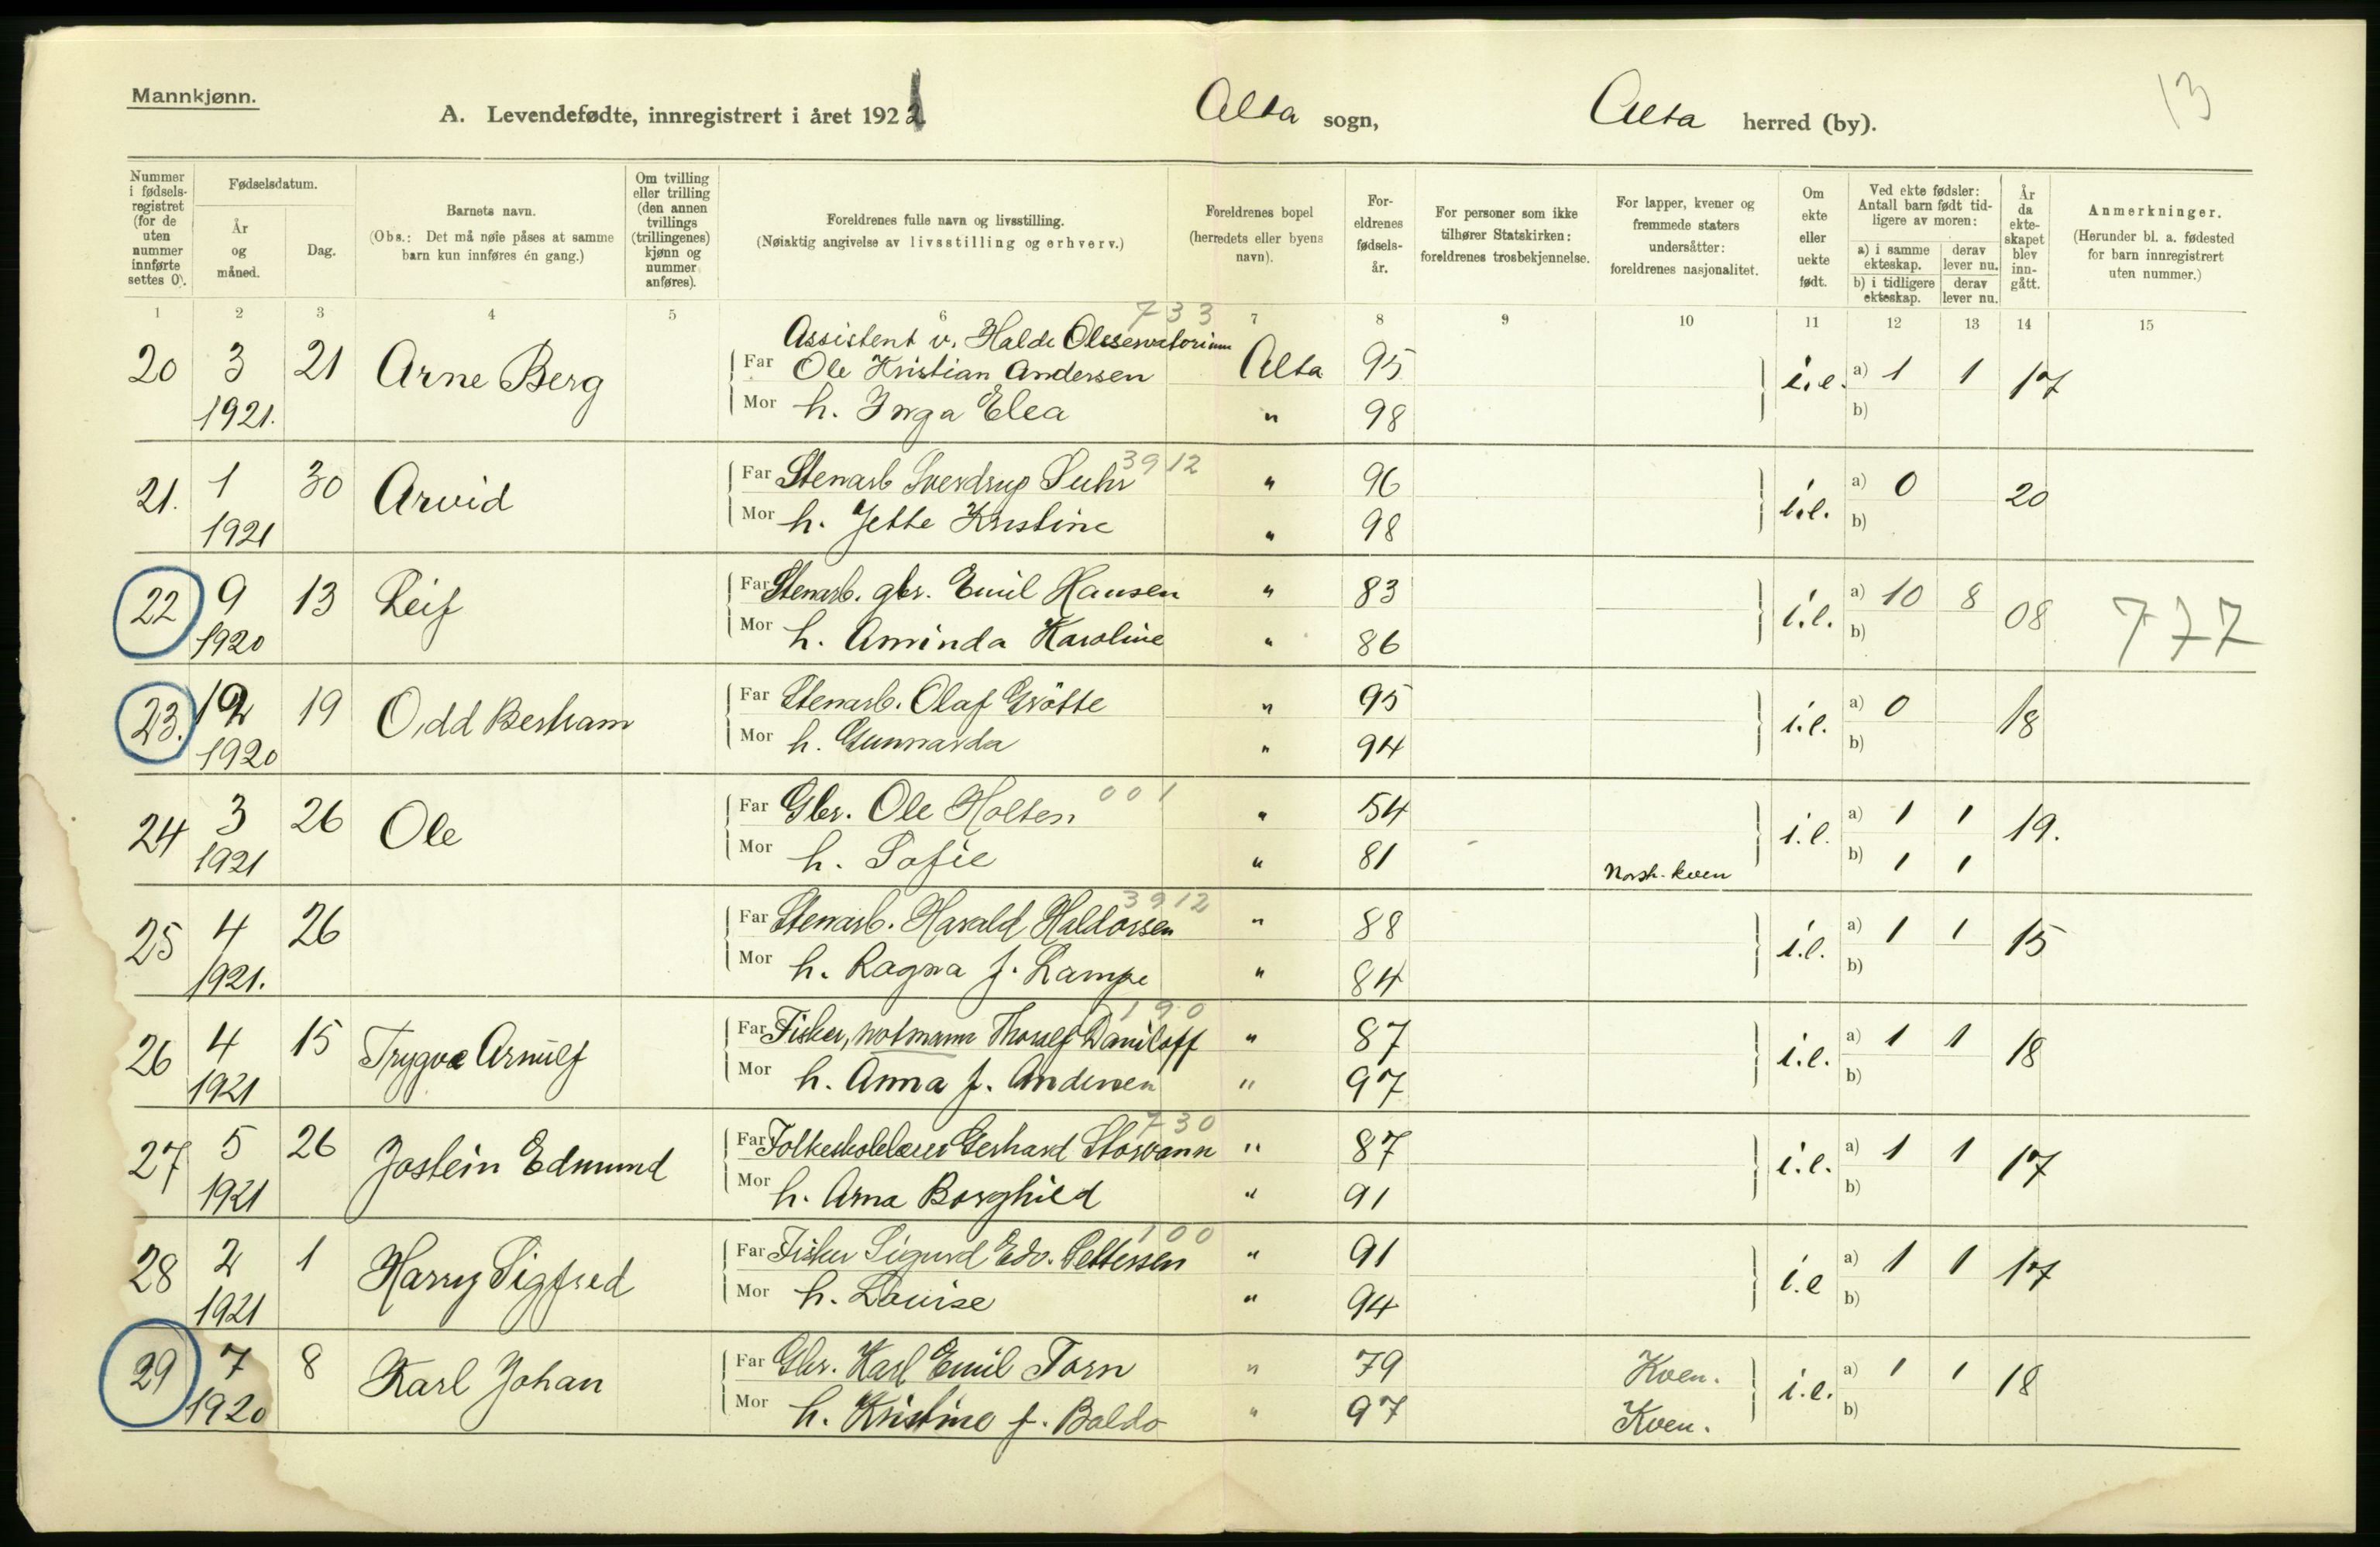 Mannkjønn.
A. Levendefødte, innregistrert i året 1921
Alta sogn,
Alta herred (by).
13
Nummer i fødselsregistret (for de uten nummer innførte settes 0).
Fødselsdatum.
År og måned.
Dag.
Barnets navn.
(Obs.: Det må nøie påses at samme barn kun innføres én gang.)
Om tvilling eller trilling (den annen tvillings (trillingenes) kjønn og nummer anføres).
Foreldrenes fulle navn og livsstilling.
(Nøiaktig angivelse av livsstilling og erhverv.)
Foreldrenes bopel (herredets eller byens navn).
Foreldrenes fødselsår.
For personer som ikke tilhører Statskirken: foreldrenes trosbekjennelse.
For lapper, kvener og fremmede staters undersåtter: foreldrenes nasjonalitet.
Om ekte eller uekte født.
Ved ekte fødsler: Antall barn født tidligere av moren:
a) i samme ekteskap. derav lever nu.
b) i tidligere ekteskap. derav lever nu.
År da ekteskapet blev inngått.
Anmerkninger.
(Herunder bl. a. fødested for barn innregistrert uten nummer.)
1 2 3 4 5 6 7 8 9 10 11 12 13 14 15
733
Assistent v. Halde Observatorium
20 3 21 Arne Berg Far Ole Kristian Andersen Alta 95 i.e. a) 1 1 17
1921. Mor h. Inga Elea " 98 b)
3912
21. 1 30 Arvid Far Stenarb Sverdrup Suhr " 96 i.e. a) 0 20
1921 Mor h. Jette Kristine " 98 b)
22 9 13 Leif Far Stenarb. gbr. Emil Hansen " 83 i.e. a) 10 8 08 777
1920 Mor h. Aminda Karoline " 86 b)
23. 12 19 Odd Bertram Far Stenarb. Olaf Grötte " 95 i.e. a) 0 18
1920 Mor h. Gunnarda " 94 b)
001
24 3 26 Ole Far Gbr. Ole Holten " 54 i.e. a) 1 1 19.
1921 Mor h. Sofie " 81 Norsk-kven b) 1 1
3912
25 4 26 Far Stenarb. Harald Haldorsen " 88 i.e. a) 1 1 15
1921. Mor h. Ragna f. Lampe " 84 b)
190
26 4 15 Trygve Arnulf Far Fisker, notmann Thoralf Daniloff " 87 i.e. a) 1 1 18
1921 Mor h. Anna f. Andersen " 97 b)
730
27 5 26 Jostein Edmund Far Folkeskolelærer Gerhard Storvann " 87 i.e. a) 1 1 17
1921 Mor h. Arna Borghild " 91 b)
100
28 2 1 Harry Sigfred Far Fisker Sigurd Edv. Pettersen " 91 i.e a) 1 1 17
1921 Mor h. Louise " 94 b)
29 7 8 Karl Johan Far Gbr. Karl Emil Torn " 79 Kven. i.e. a) 1 1 18
1920 Mor h. Kristine f. Baldo " 97 Kven. b)